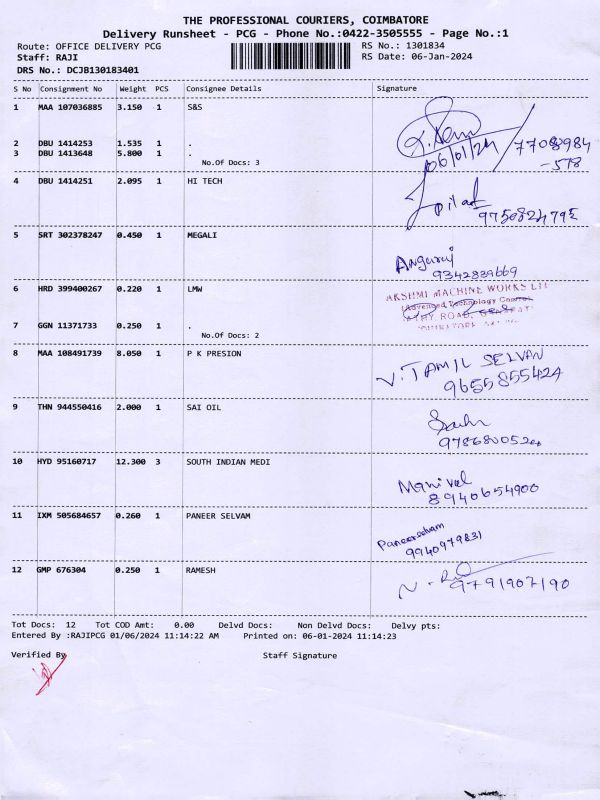 THE PROFESSIONAL COURIERS, COIMBATORE
Delivery Runsheet - PCG - Phone No.:0422-3505555 - Page No.:1
Route: OFFICE DELIVERY PCG RS No.: 1301834
Staff: RAJI RS Date: 06-Jan-2024
DRS No.: DCJB130183401
S No Consignment No Weight PCS Consignee Details Signature
1 MAA 107036885 3.150 1 S&S
06/01/24
2 DBU 1414253 1.535 1 .
3 DBU 1413648 5.800 1 .
No.Of Docs: 3
4 DBU 1414251 2.095 1 HI TECH
5 SRT 302378247 0.450 1 MEGALI
Anguraj
9342839669
6 HRD 399400267 0.220 1 LMW
AKSHMI MACHINE WORKS
Advanced Technology
ROAD,
7 GGN 11371733 0.250 1 .
No.Of Docs: 2
8 MAA 108491739 8.050 1 P K PRESION
V. TAMIL SELVAN
9655855424
9 THN 944550416 2.000 1 SAI OIL
10 HYD 95160717 12.300 3 SOUTH INDIAN MEDI
Manivel
8940654900
11 IXM 505684657 0.260 1 PANEER SELVAM
Paneerselvam
9940979831
12 GMP 676304 0.250 1 RAMESH
9791907190
Tot Docs: 12 Tot COD Amt: 0.00 Delvd Docs: Non Delvd Docs: Delvy pts:
Entered By :RAJIPCG 01/06/2024 11:14:22 AM Printed on: 06-01-2024 11:14:23
Verified By Staff Signature